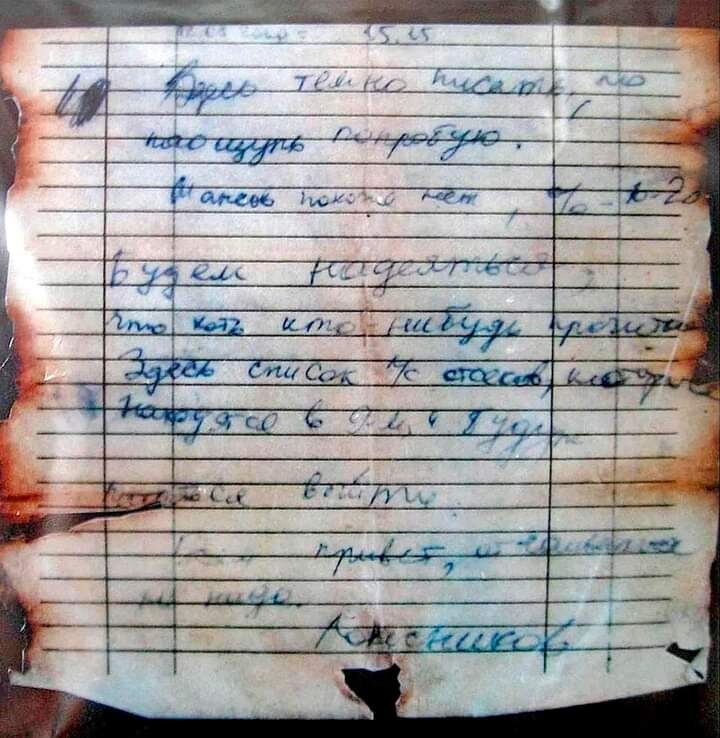 15.15
Здесь темно писать, но
наощупь попробую.
Шансов похоже нет, %-10-20
Будем надеяться,
что хоть кто-нибудь прочитает
Здесь список л/с отсеков, которые
находятся в 9-м и будут
пытаться выйти.
Всем привет, отчаиваться
не надо.
Колесников